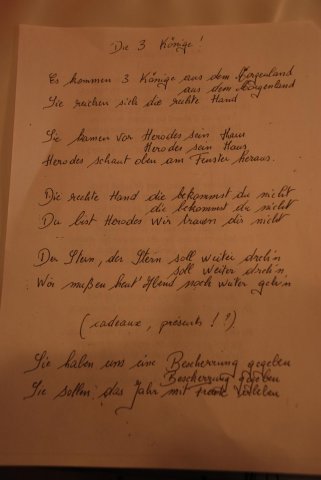 Die 3 Könige!
Es kommen 3 Könige aus dem Morgenland
aus dem Morgenland
Sie reichen sich die rechte Hand
Sie kamen vor Herodes sein Haus
Herodes sein Haus
Herodes schaut oben am Fenster heraus.
Die rechte Hand die bekommst du nicht
die bekommst du nicht
Du bist Herodes wir trauen dir nicht
Der Stern, der Stern soll weiter dreh'n
soll weiter dreh'n
Wir müßen heut Abend noch weiter geh'n
(cadeaux, présents !?)
Sie haben uns eine Bescherrung gegeben
Bescherrung gegeben
Sie sollen das Jahr mit Freude erleben